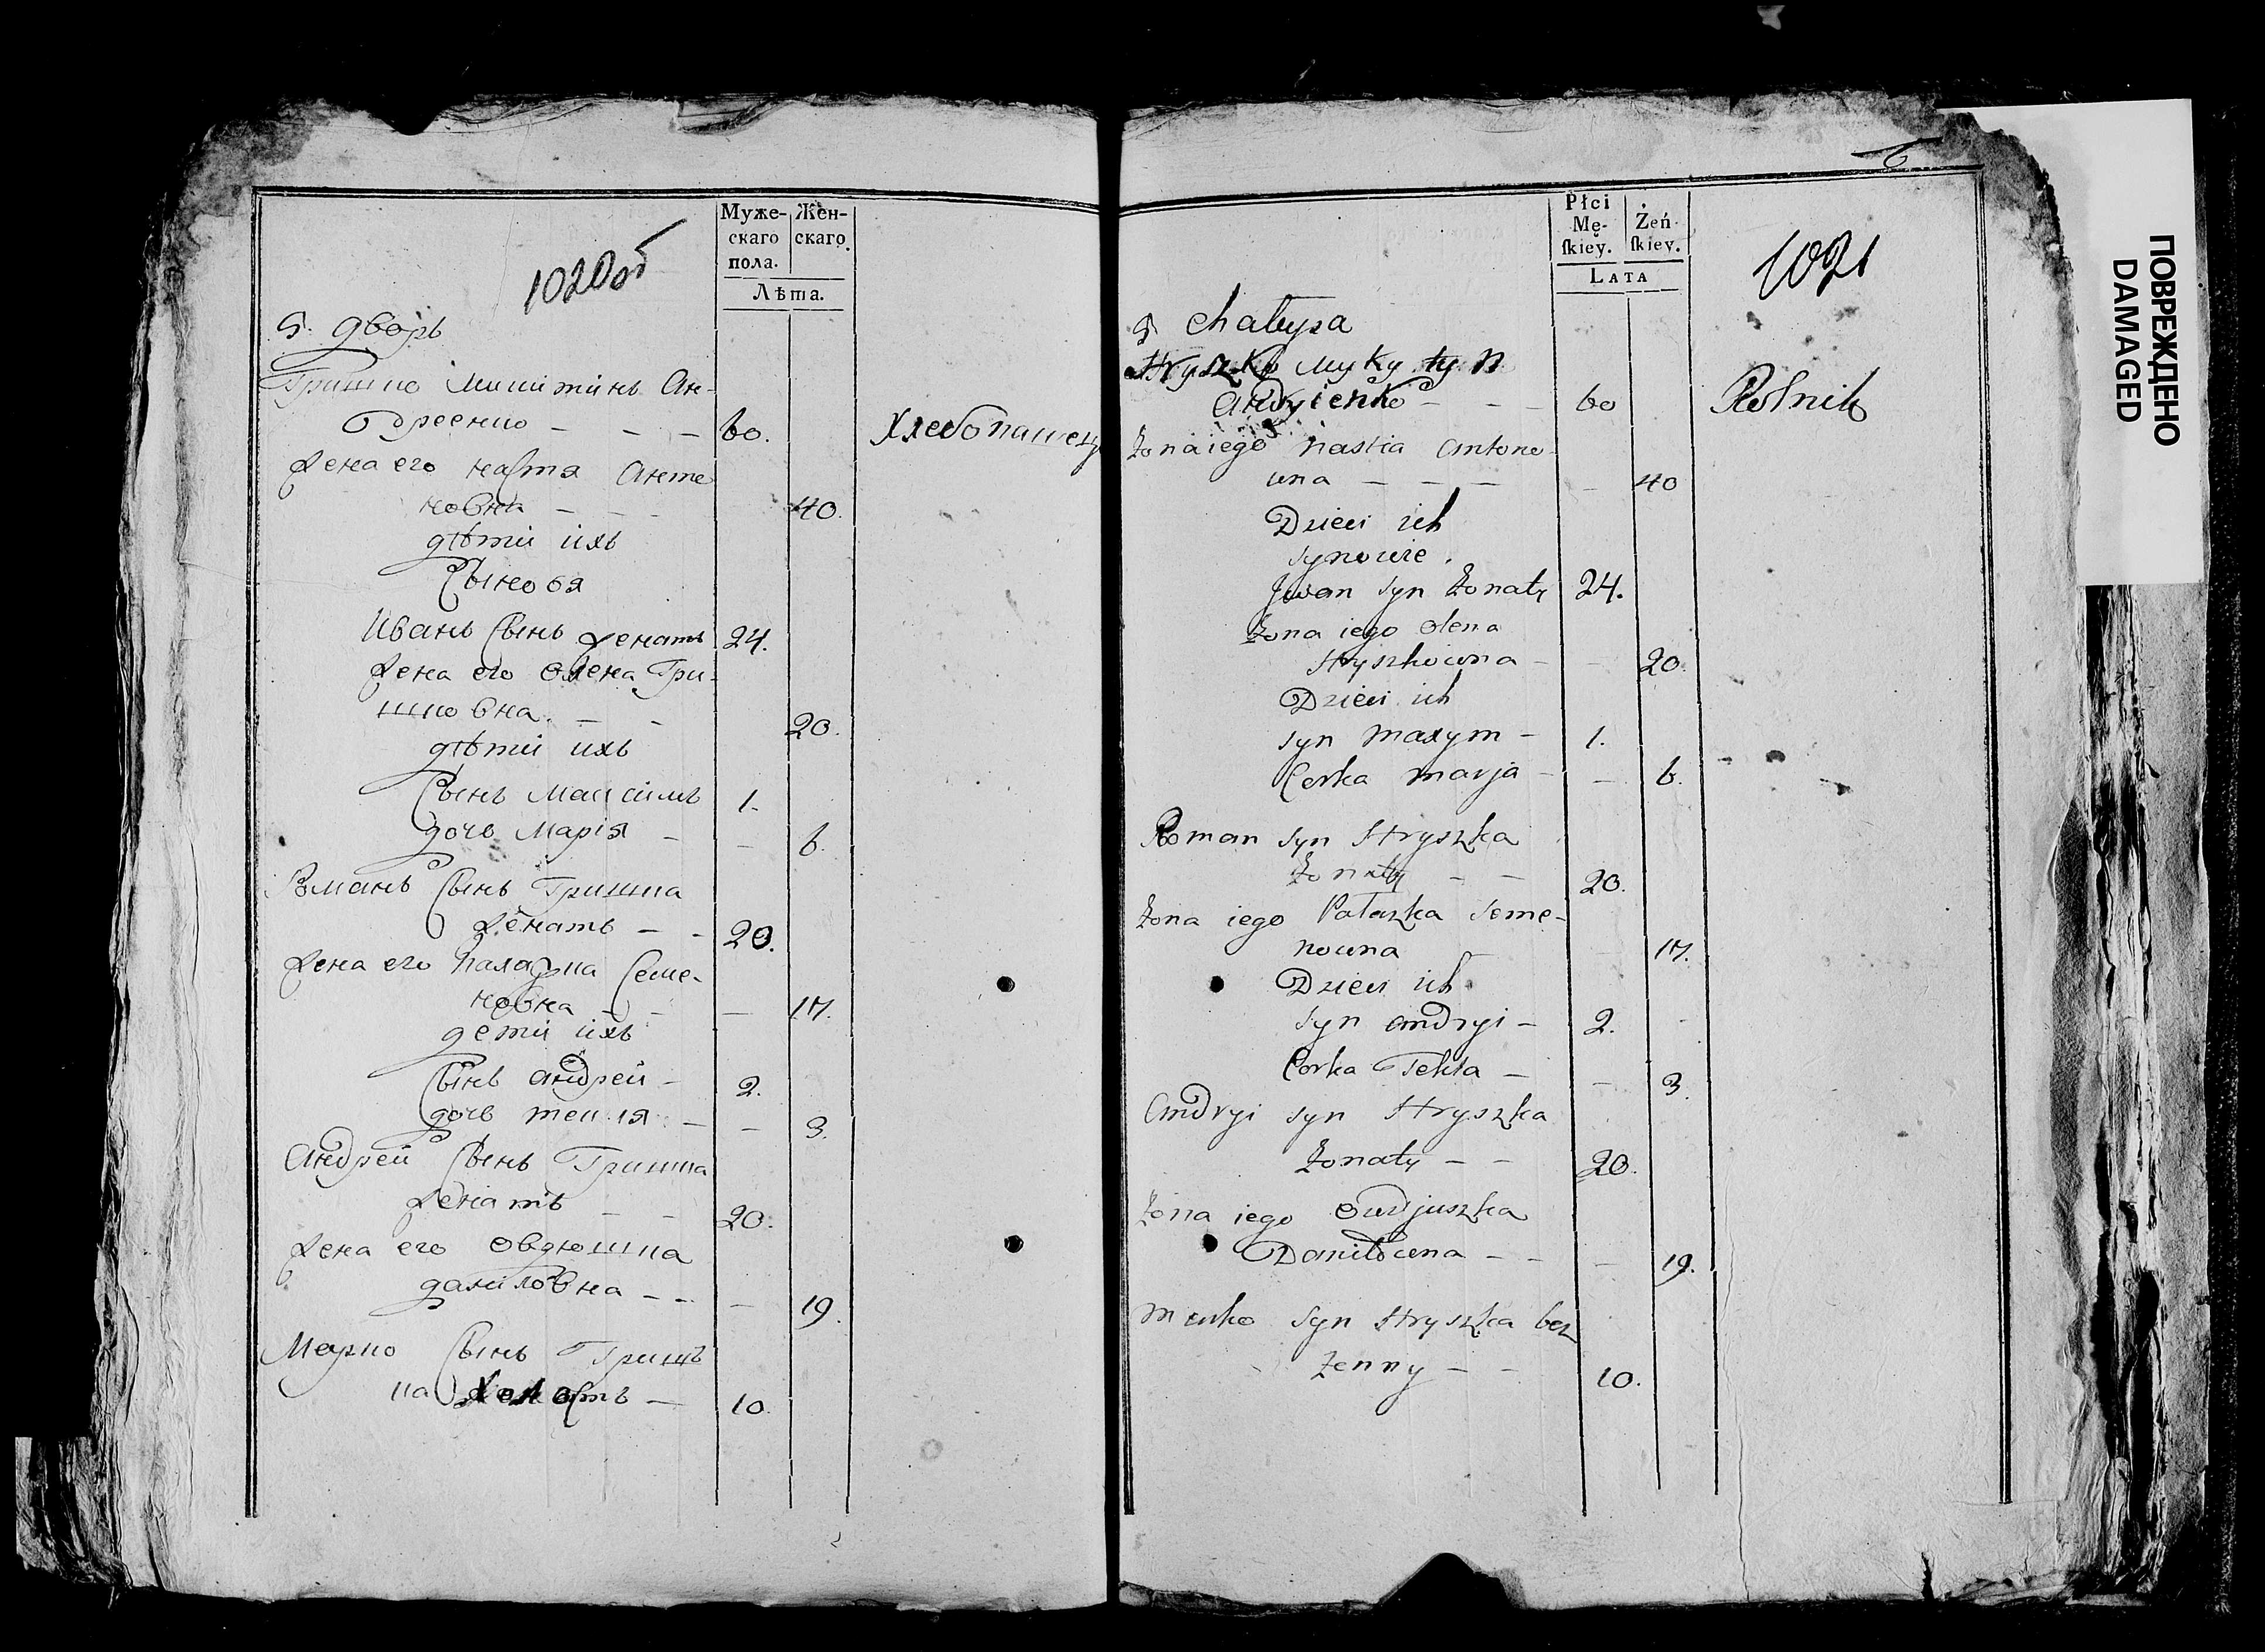 1020об
Муже-
скаго
пола.
Жен-
скаго.
Лѣта.
5. дворъ
Гришко Микитинъ Ан-
дреенко — — — 60. Хлебопашец
Жена его настя Анто
новна — — 40.
дѣти ихъ
Сыновя
Иванъ Сынъ женатъ 24.
Жена его олена Гри-
шковна — — 20.
дѣти ихъ
Сынъ Максимъ 1.
дочь Марія — — 6.
Романъ Сынъ Гришка
женатъ — — 20.
Жена его Палажка Семе-
новна — — — 17.
дети ихъ
Сынъ андрей — 2.
дочь текля — — 3.
Андрей Сынъ Гришка
женатъ — — 20.
Жена его овдюшка
даниловна — — — 19.
Марко Сынъ Гриш
ка холостъ — 10.
6
Płci
Mę-
ſkiey.
Żeń-
ſkiey.
LATA
1021
5 chałupa
Hryszko Mykytyn
Andryienko — — — 60 Rolnik
Żona iego Nastia Antono
wna — — — — 40
Dzieci ich
synowie.
Jwan syn żonaty 24.
Żona iego Olena
Hryszkowna — — 20.
Dzieci ich
syn Maxym — 1.
Corka Marja — — 6.
Roman syn Hryszka
Żonaty — — 20.
Żona iego Pałaszka Seme-
nowna — — 17.
Dzieci ich
syn Andryi — 2. -
Corka Tekla — — 3.
Andryi syn Hryszka
Żonaty — — 20.
Żona iego Owdjuszka
Daniłowna — — — 19.
Marko syn Hryszka bez
żenny — — 10.
ПОВРЕЖДЕНО
DAMAGED